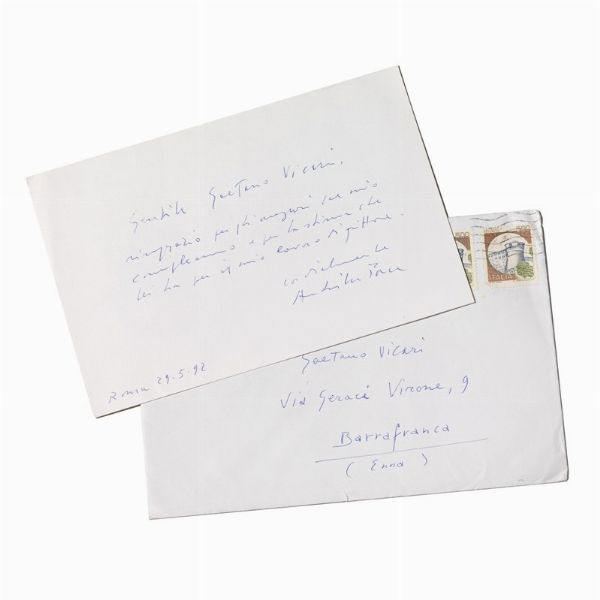 Gentile Gaetano Vicari,
ringrazio per gli auguri del mio
compleanno e per la stima che
lei ha per il mio lavoro di pittore.
cordialmente
Roma 29.5.92
500
ITALIA
Gaetano Vicari
Via Geracé Virone, 9
Barrafranca
(Enna)